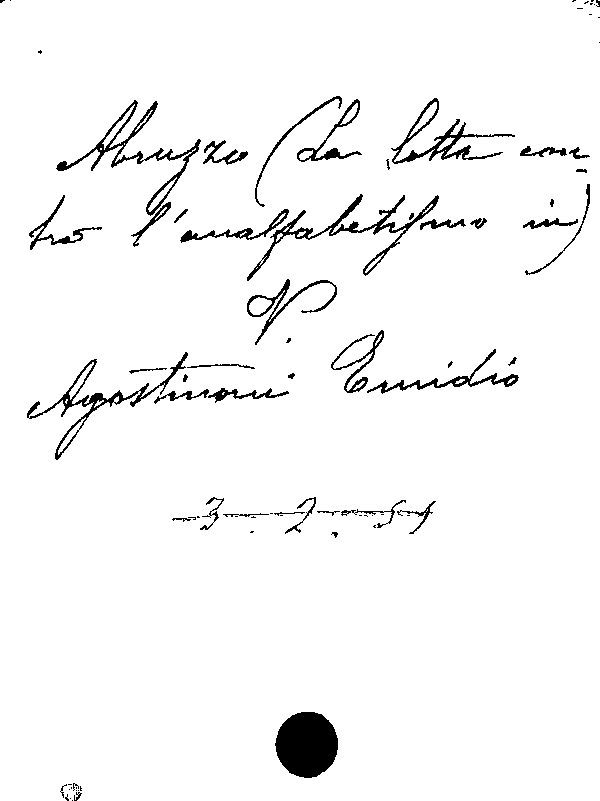 Abruzzo (La lotta con-
tro l'analfabetismo in)
V.
Agostinoni Emidio